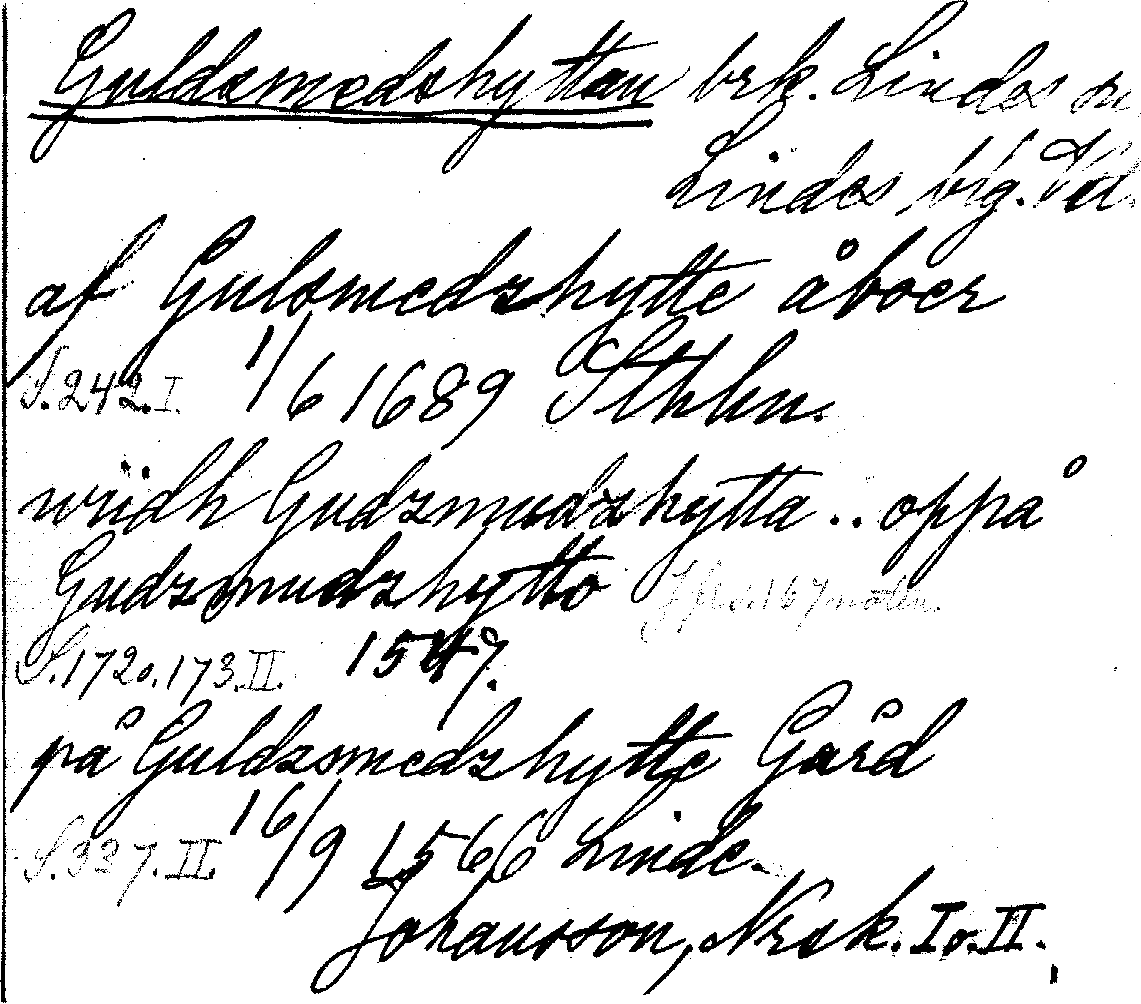 Guldsmedshyttan brk. Lindes sn
Lindes brg. Vstl.
af Gulsmedzhytte åboer
S.242.I. 1/6 1689 Sthlm.
widh Gudzmudzhytta .. oppå
Gudzmudzhytto Jfr s.167 noten.
S.172o.173.II. 1547.
på Guldzsmedzhytte Gård
S.337.II 16/9 1566 Linde.
Johansson, Nrsk. I o. II.